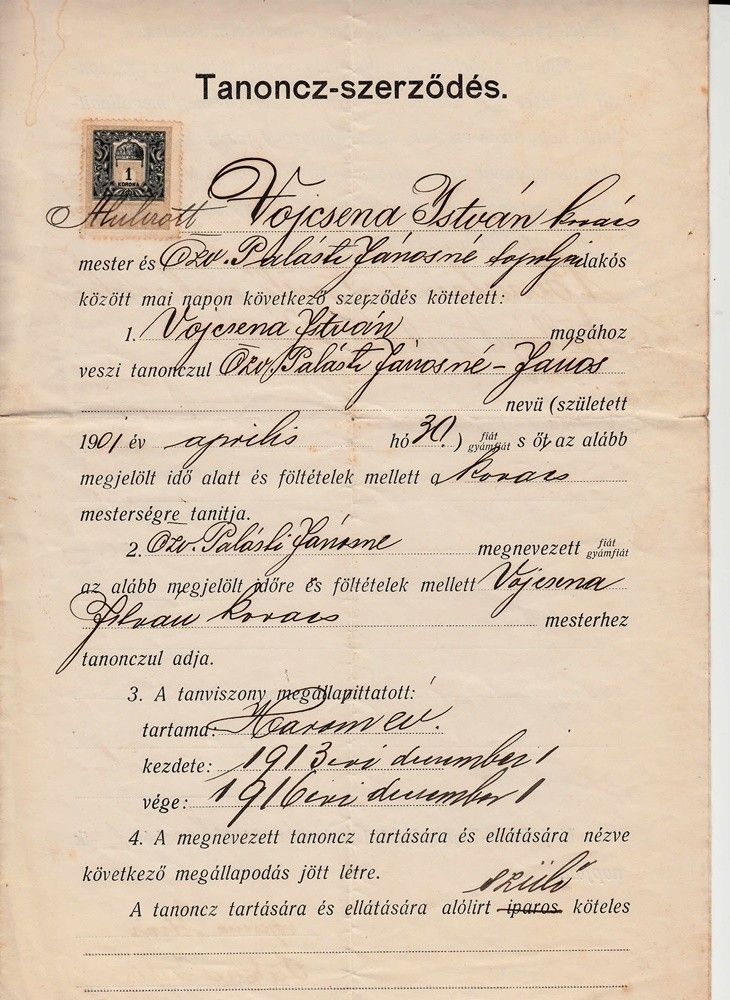 Tanoncz-szerződés.
1
KORONA
Alulirott Vojcsena István kovács
mester és Özv. Palásti Jánosné topolyai lakós
között mai napon következő szerződés köttetett:
1. Vojcsena István magához
veszi tanonczul Özv. Palásti Jánosné - János
nevü (született
1901 év április hó 30.) fiát gyámfiát s őt az alább
megjelölt idő alatt és föltételek mellett a kovacs
mesterségre tanitja.
2. Özv. Palásti Jánosne megnevezett fiát gyámfiát
az alább megjelölt időre és föltételek mellett Vojcsena
Istvan kovacs mesterhez
tanonczul adja.
3. A tanviszony megállapittatott:
tartama: Harom ev.
kezdete: 1913 evi december 1
vége: 1916 evi december 1
4. A megnevezett tanoncz tartására és ellátására nézve
következő megállapodás jött létre.
szülő
A tanoncz tartására és ellátására alólirt iparos köteles